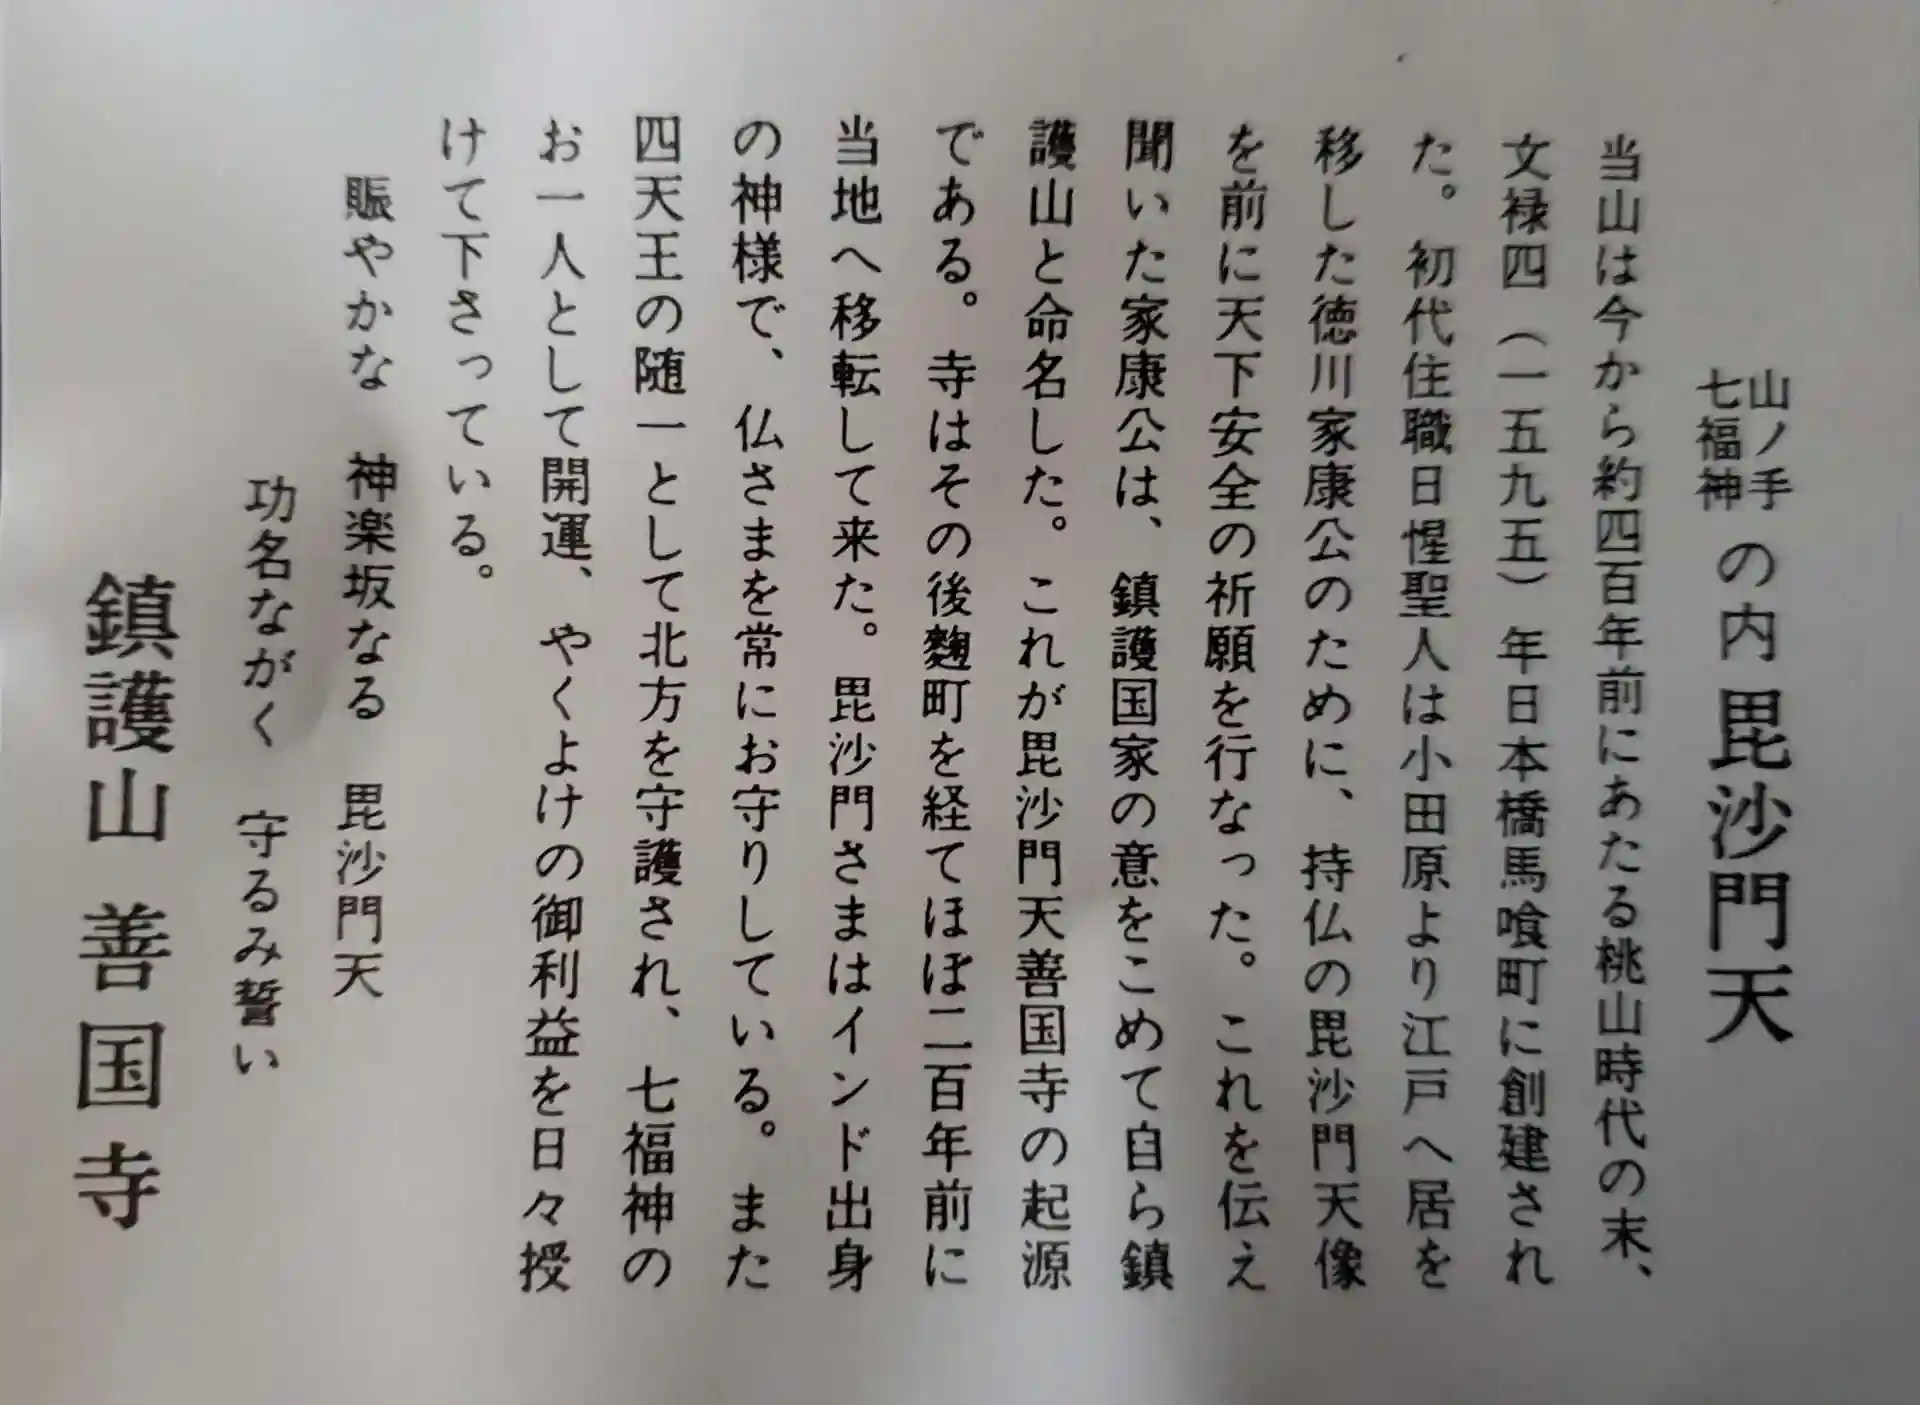 山ノ手
七福神
の内 毘沙門天
当山は今から約四百年前にあたる桃山時代の末、
文禄四（一五九五）年日本橋馬喰町に創建され
た。初代住職日惺聖人は小田原より江戸へ居を
移した徳川家康公のために、持仏の毘沙門天像
を前に天下安全の祈願を行なった。これを伝え
聞いた家康公は、鎮護国家の意をこめて自ら鎮
護山と命名した。これが毘沙門天善国寺の起源
である。寺はその後麹町を経てほぼ二百年前に
当地へ移転して来た。毘沙門さまはインド出身
の神様で、仏さまを常にお守りしている。また
四天王の随一として北方を守護され、七福神の
お一人として開運、やくよけの御利益を日々授
けて下さっている。
賑やかな 神楽坂なる 毘沙門天
功名ながく 守るみ誓い
鎮護山 善国寺